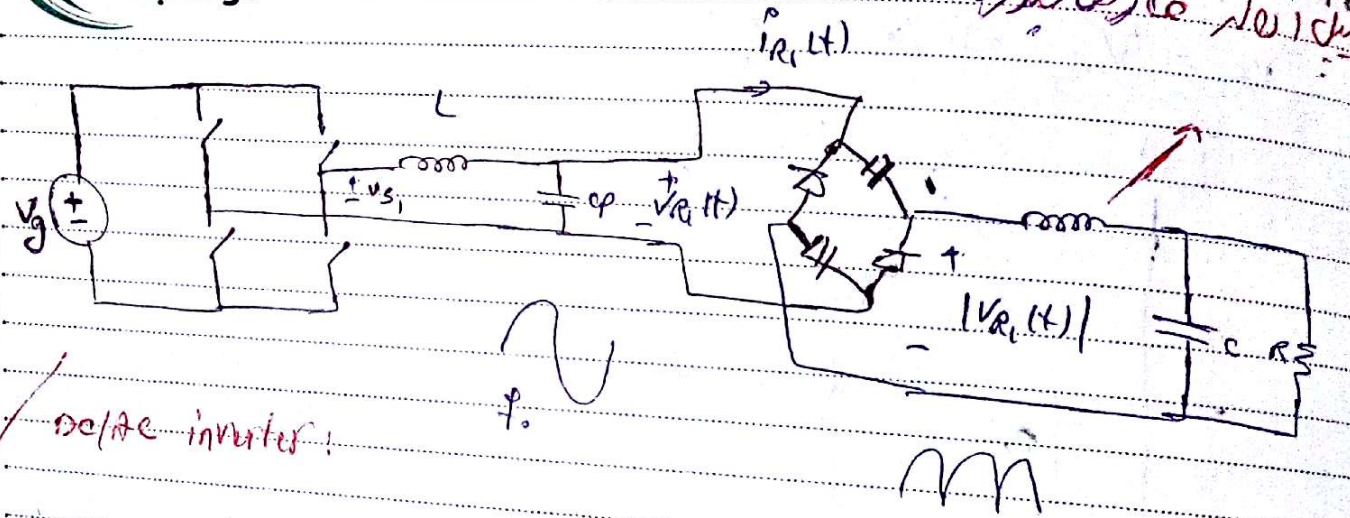 i_{R_1}(t)
L
V_g
+
-
± v_{s_1}
cp
+
V_{R_1}(t)
-
+
|V_{R_1}(t)|
-
C
R
f_o
DC/AC inverter: